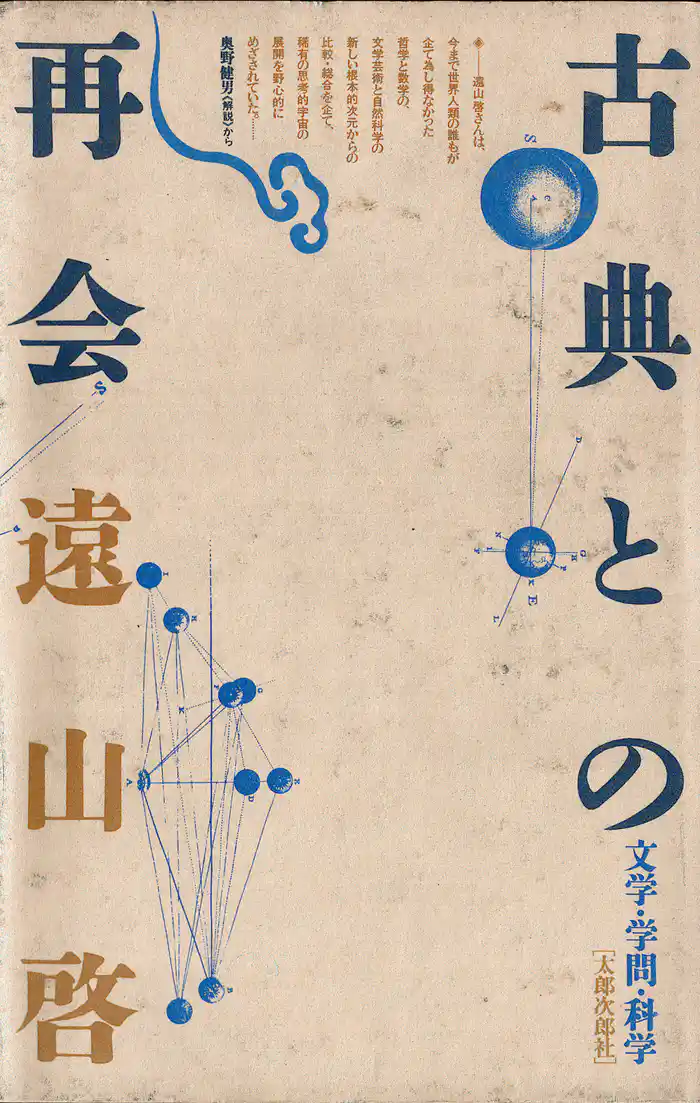 古典との
再会
文学・学問・科学
[太郎次郎社]
遠山啓
◈——遠山啓さんは、
今まで世界人類の誰もが
企て為し得なかった
哲学と数学の、
文学芸術と自然科学の
新しい根本的次元からの
比較・総合を企て、
稀有の思考的宇宙の
展開を野心的に
めざされていた。……
奥野健男《解説》から
S
A C
D
G
H
F
N
E
L
S
I
H
G
K
A
D
E
B